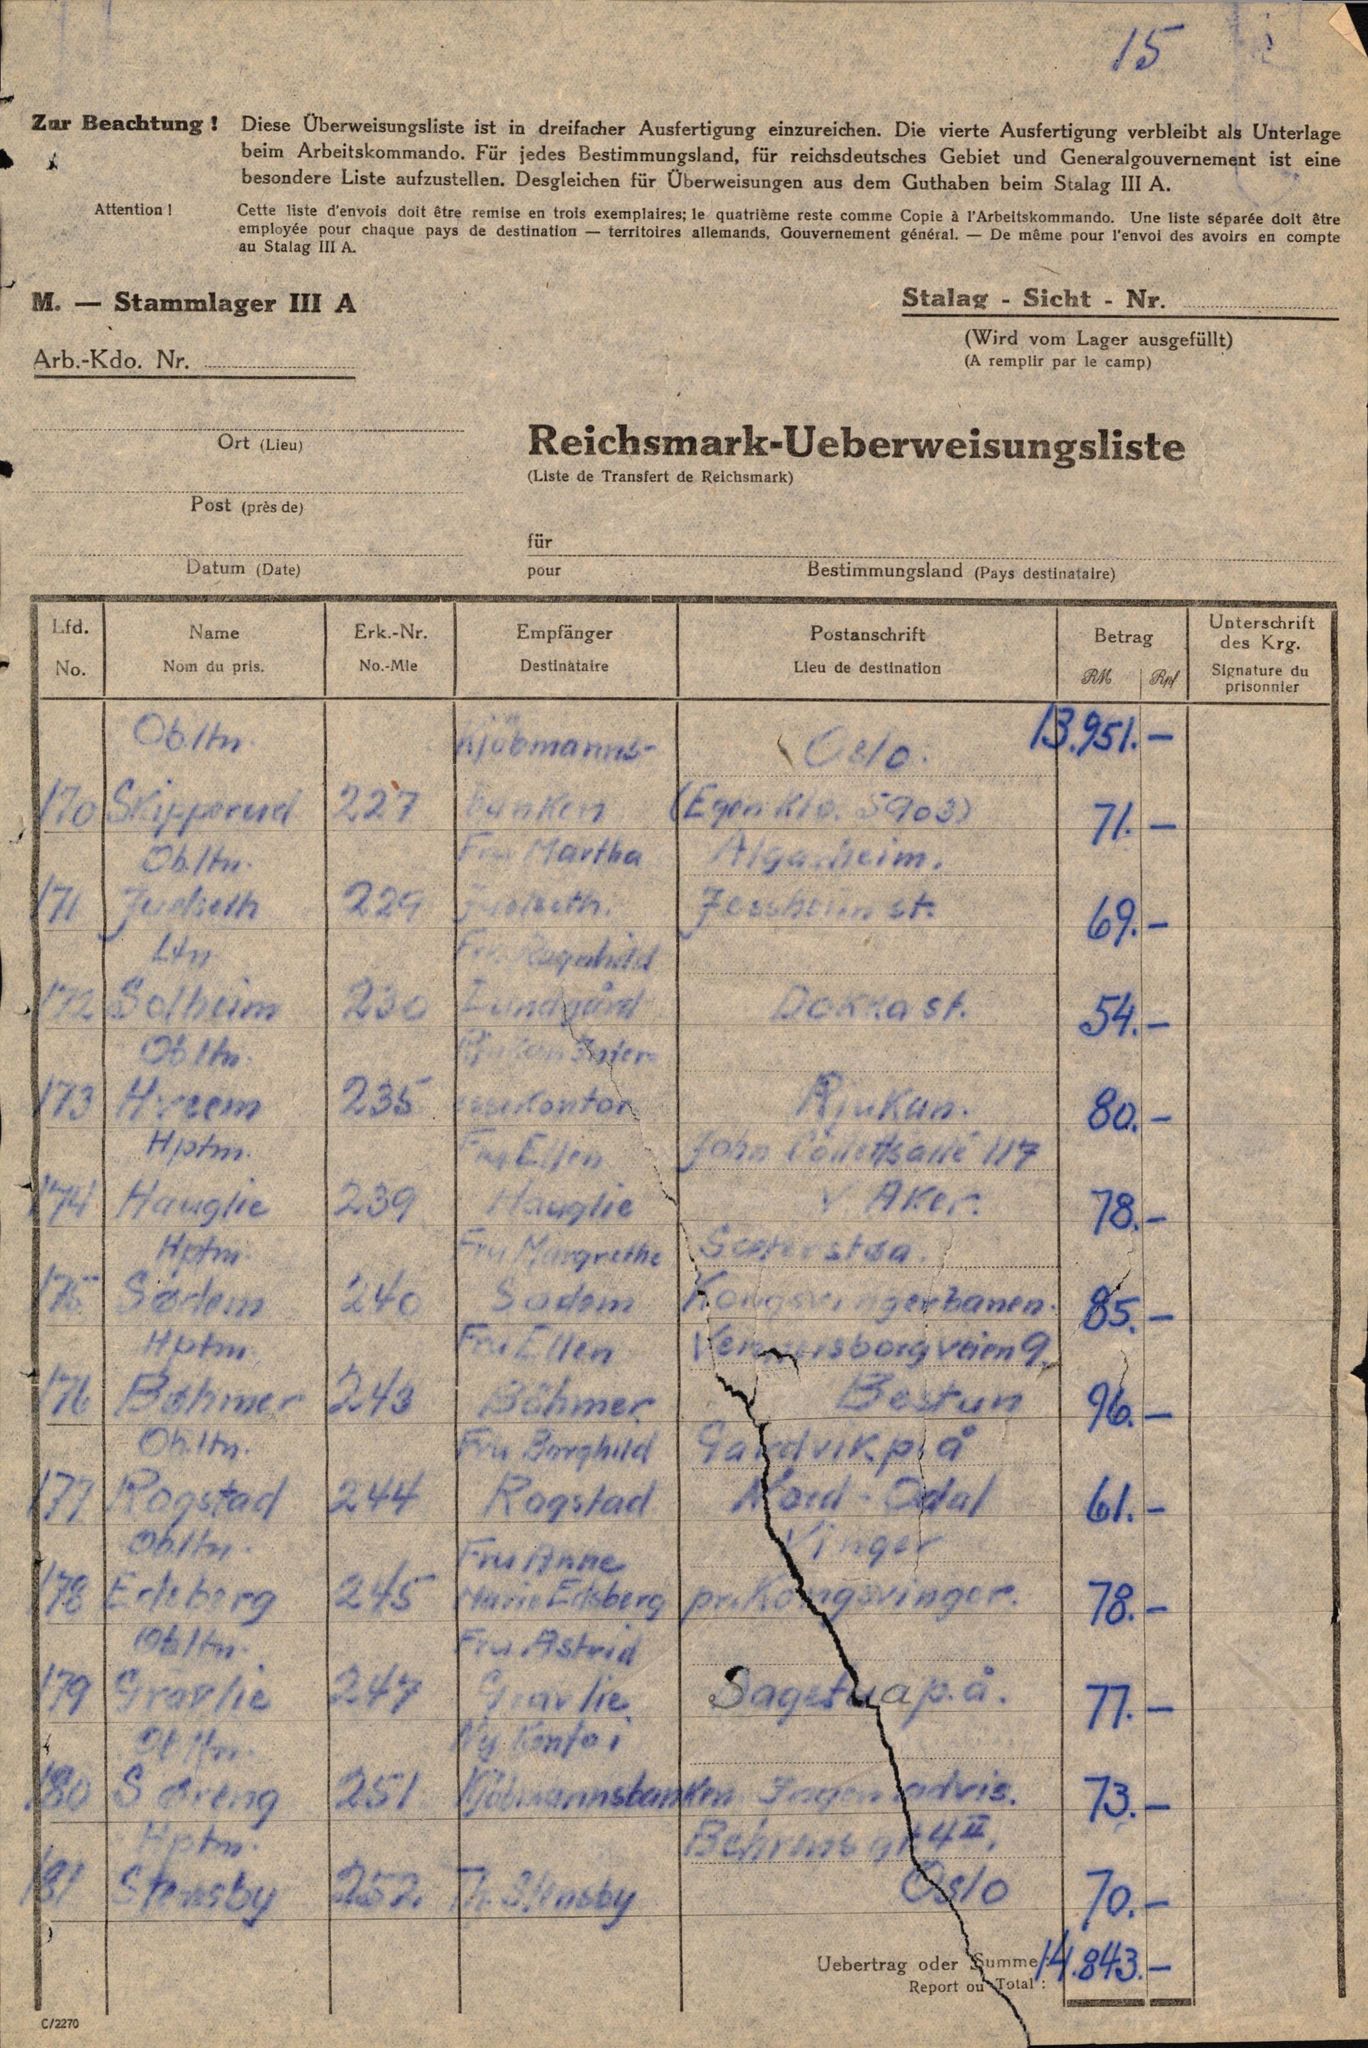 15
Zur Beachtung ! Diese Überweisungsliste ist in dreifacher Ausfertigung einzureichen. Die vierte Ausfertigung verbleibt als Unterlage
beim Arbeitskommando. Für jedes Bestimmungsland, für reichsdeutsches Gebiet und Generalgouvernement ist eine
besondere Liste aufzustellen. Desgleichen für Überweisungen aus dem Guthaben beim Stalag III A.
Attention ! Cette liste d'envois doit être remise en trois exemplaires; le quatrième reste comme Copie à l'Arbeitskommando. Une liste séparée doit être
employée pour chaque pays de destination — territoires allemands, Gouvernement général. — De même pour l'envoi des avoirs en compte
au Stalag III A.
M. — Stammlager III A
Stalag - Sicht - Nr.
(Wird vom Lager ausgefüllt)
(A remplir par le camp)
Arb.-Kdo. Nr.
Ort (Lieu)
Reichsmark-Ueberweisungsliste
(Liste de Transfert de Reichsmark)
Post (près de)
für
Datum (Date)
pour Bestimmungsland (Pays destinataire)
Lfd. Name Erk.-Nr. Empfänger Postanschrift Betrag Unterschrift des Krg.
No. Nom du pris. No.-Mle Destinataire Lieu de destination RM Rpf Signature du prisonnier
Obltn. Kjöbmanns- Oslo. 13.951.—
170 Skipperud 227 banken (Egen Kto. 5903) 71.—
Obltn. Fru Martha Algarheim.
171 Julseth 229 Julseth. Jessheim st. 69.—
Ltn Fru Ragnhild
172 Solheim 230 Lundgård Dokka st. 54.—
Obltn. Rjukan
173 Hveem 235 Rjukan. 80.—
Hptm. Fru Ellen John 117
174 Hauglie 239 Hauglie V. Aker. 78.—
Hptm. Fru Margrethe Seterstøa.
175 Sødem 240 Sødem Kongsvingerbanen. 85.—
Hptm. Fru Ellen Vennersborgveien 9.
176 Bøhmer 243 Böhmer Bestun 96.—
Obltn. Fru Borghild Gardvik p. å
177 Rogstad 244 Rogstad Nord-Odal 61.—
Obltn. Fru Anne Vinger
178 Edsberg 245 Marie Edsberg pr. Kongsvinger. 78.—
Obltn. Fru Astrid
179 Gravlie 247 Gravlie Sagstua p.å. 77.—
Obltn. Ny Konto i
180 Søreng 251 Kjöbmannsbanken advis. 73.—
Hptm. Behrens gt 4 II.
181 Stensby 252. Th. Stensby Oslo 70.—
Uebertrag oder Summe : 14.843.—
Report ou Total :
C/2270